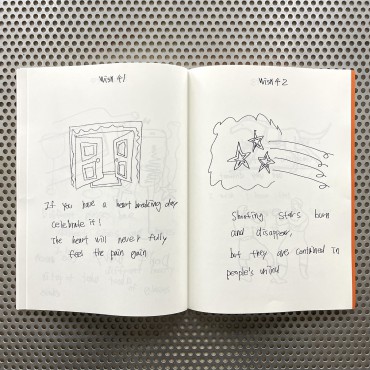 Wish 41
If you have a heart breaking day
celebrate it!
The heart will never fully
feel the pain again
Wish 42
Shooting stars burn
and disappear,
but they are contained in
people's